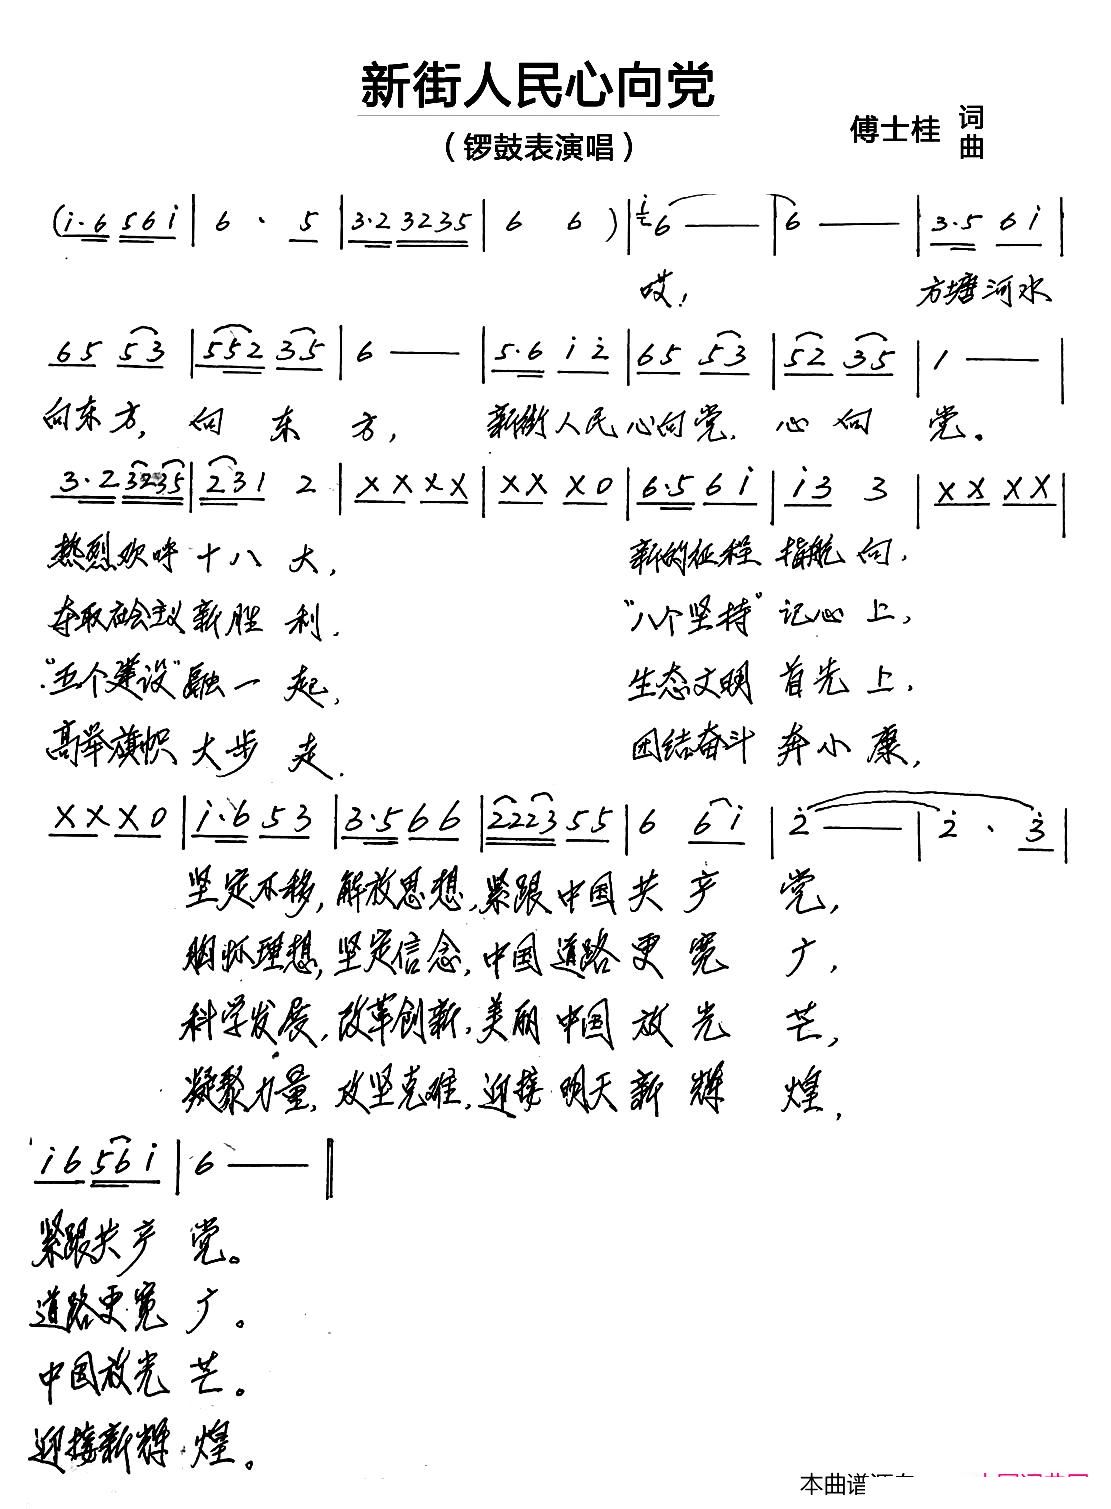 新街人民心向党
（锣鼓表演唱）
傅士桂 词曲
(i·6 56i | 6 · 5 | 3·2 3235 | 6 6 ) | i6 — | 6 — | 3·5 6i |
哎！ 方塘河水
65 53 | 552 35 | 6 — | 5·6 i2 | 65 53 | 52 35 | 1 — |
向东方，向东方，新街人民心向党，心向党。
3·2 3235 | 231 2 | XX XX | XX X0 | 6·5 6i | i3 3 | XX XX |
热烈欢呼十八大， 新的征程指航向，
夺取社会主义新胜利， “八个坚持”记心上，
“五个建设”融一起， 生态文明首先上，
高举旗帜大步走， 团结奋斗奔小康，
XX X0 | i·6 53 | 3·5 66 | 2223 55 | 6 6i | 2 — | 2 · 3 |
坚定不移，解放思想，紧跟中国共产党，
胸怀理想，坚定信念，中国道路更宽广，
科学发展，改革创新，美丽中国放光芒，
凝聚力量，攻坚克难，迎接明天新辉煌，
i6 56i | 6 — ‖
紧跟共产党。
道路更宽广。
中国放光芒。
迎接新辉煌。
本曲谱源自